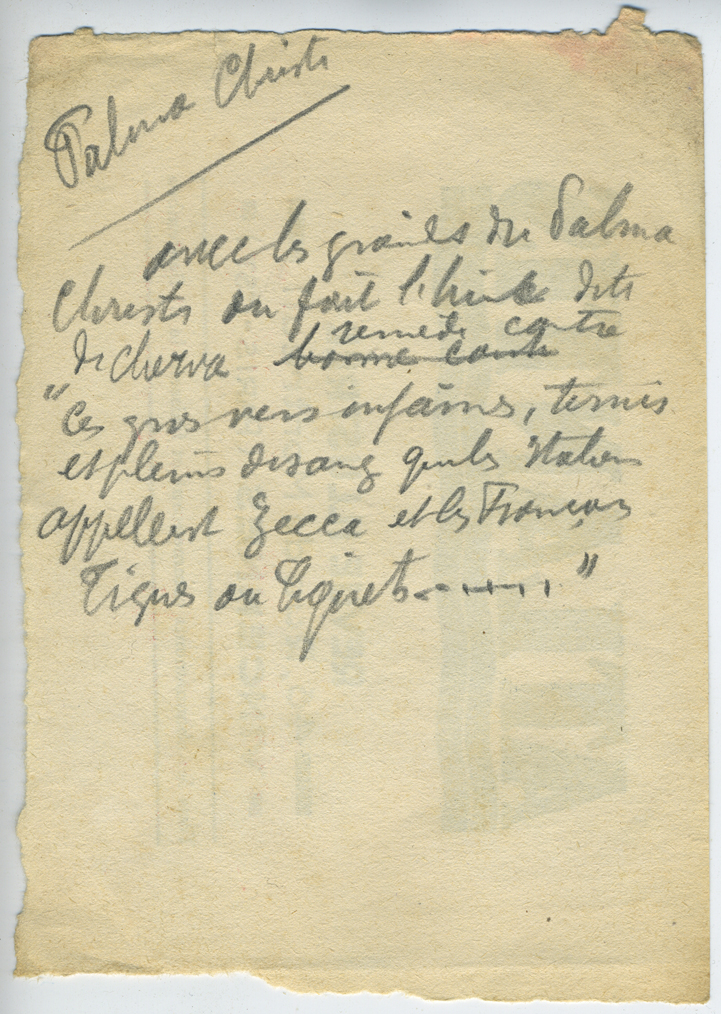 Palma Christi
avec les graines du Palma
Christi on fait l'huile dite
de cherva remède contre
"Ces gros vers infâmes, ternis
et pleins de sang que les Italiens
appellent Zecca et les Français
Tiques ou Tiquets ....... "